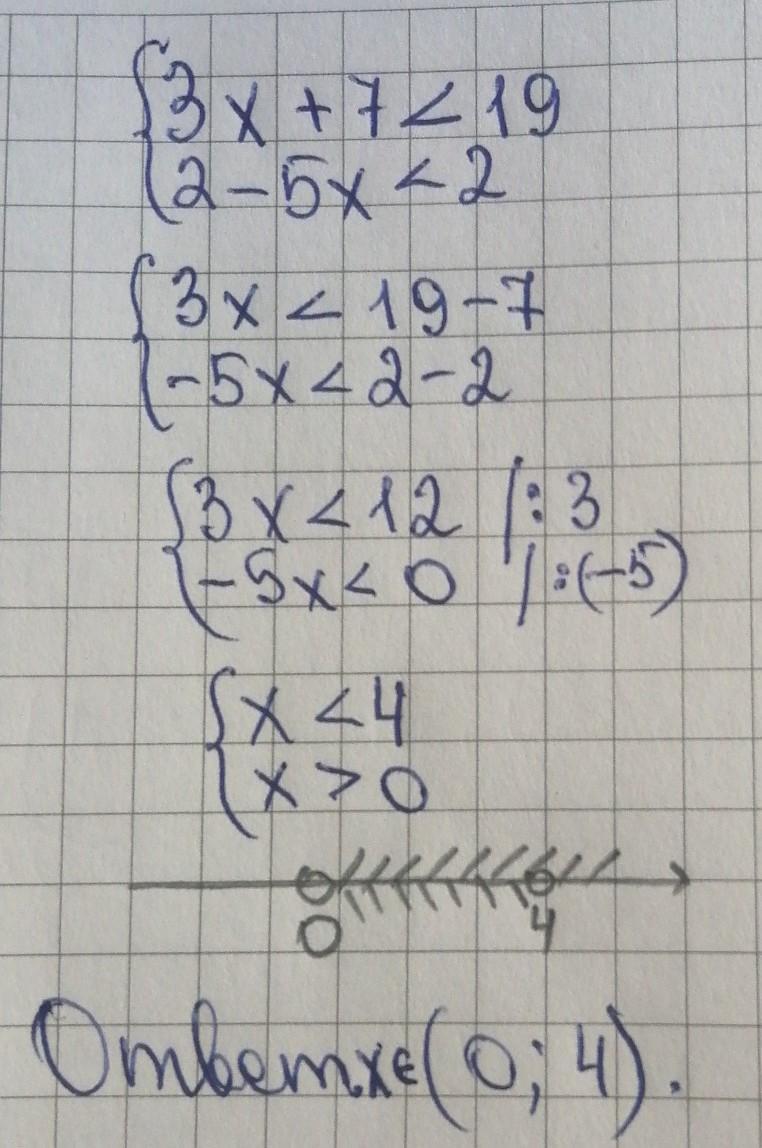 {3x + 7 < 19
{2 - 5x < 2
{3x < 19 - 7
{-5x < 2 - 2
{3x < 12 |: 3
{-5x < 0 |:(-5)
{x < 4
{x > 0
0 4
Ответ x∈(0; 4).